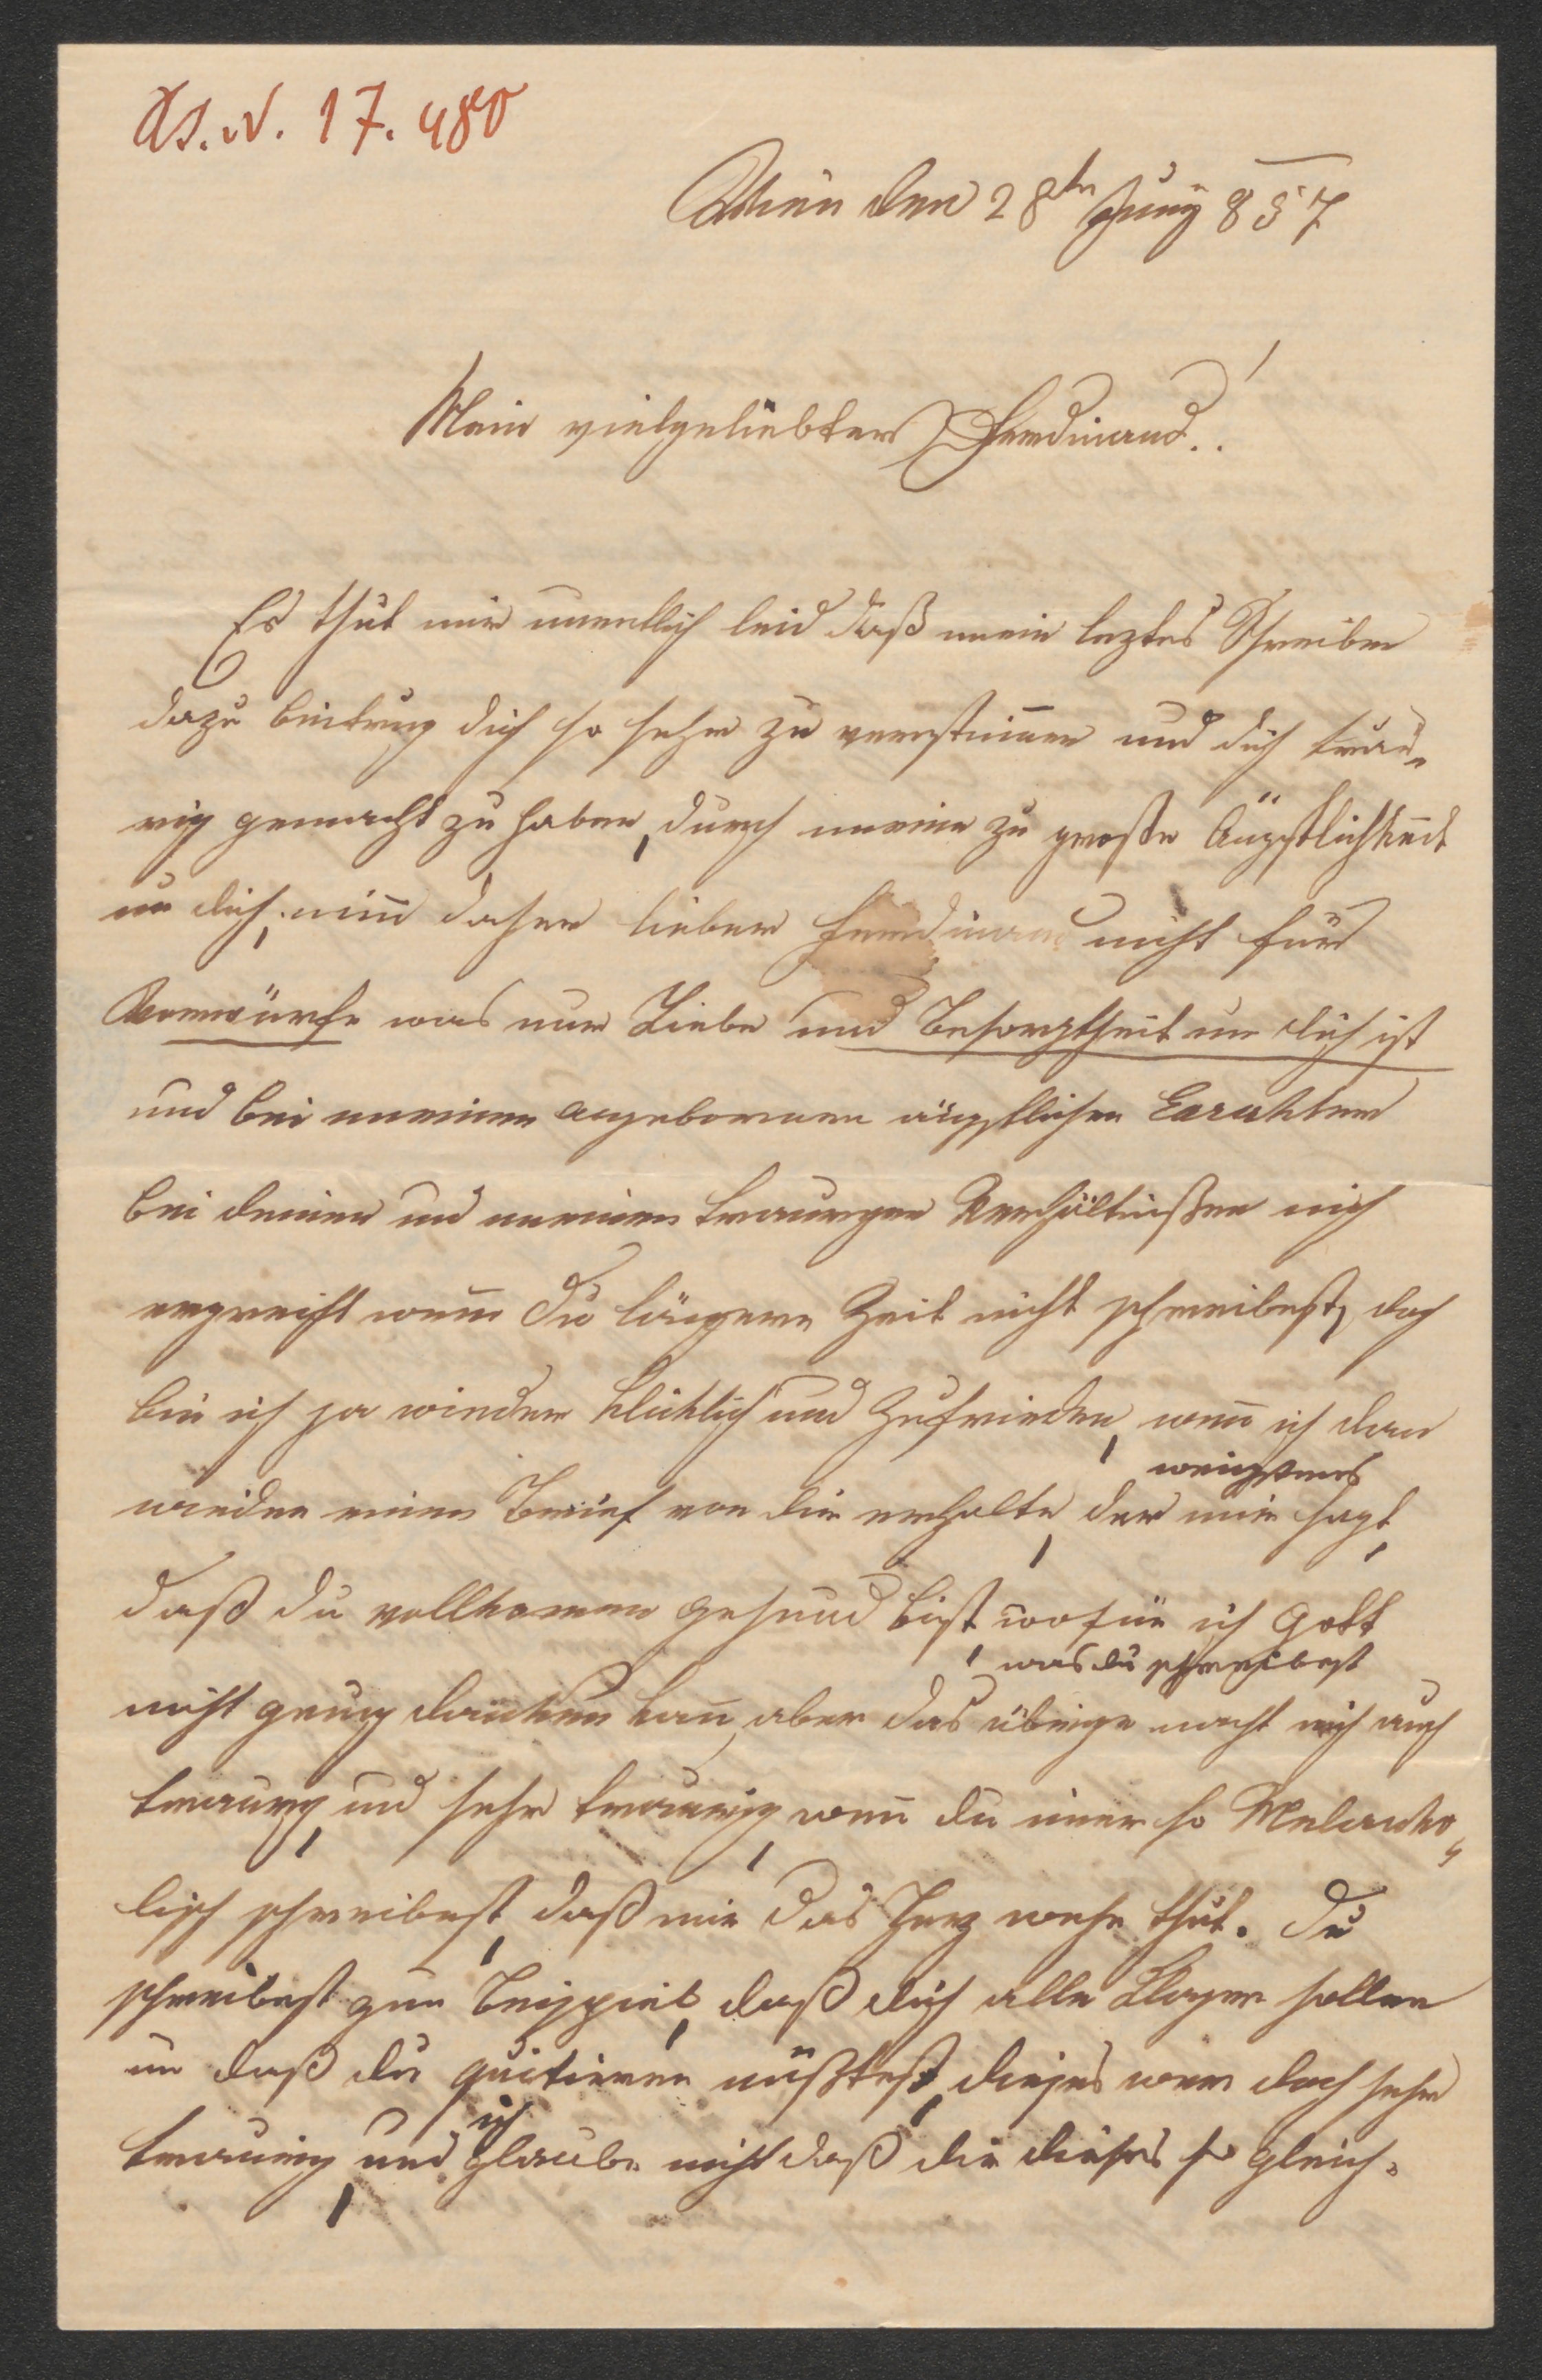 H.I.N. 17.480
Wien den 28tn Juny 857
Mein vielgeliebter Ferdinand!
Es thut mir unentlich leid daß mein leztes Schreiben
dazu beitrug dich so sehr zu verstim̅en und dich trau„
rig gemacht zu haben, durch meine zu große Ängstlichkeit
um dich, nim̅ daher lieber Ferdinand nicht für
Vorwürfe was nur Liebe und Besorgtheit um dich ist
und bei meinem angebornen ängstlichen Carakter
bei deinen und meinen traurigen Verhältnißen mich
ergreift wenn Du längere Zeit nicht schreibest, doch
bin ich ja wieder klicklich und Zufrieden, wen̅ ich dan
wenigstens
wieder einen Brief von dir erhalte, der mir sagt,
daß du vollkomen gesund bist, wofür ich Gott
was du schreibest
nicht genug danken kan̅, aber das übrige macht mich auch
traurig, und sehr traurig, wen̅ du im̅er so Melanko„
lisch schreibest, daß mir das Herz wehe thut. Du
schreibest zum Beispiel, daß dich alle Klagen sollen
um daß du quitieren müßtest, dieses wer doch sehr
ich
traurig, und glaube nicht daß dir dieses so gleich„